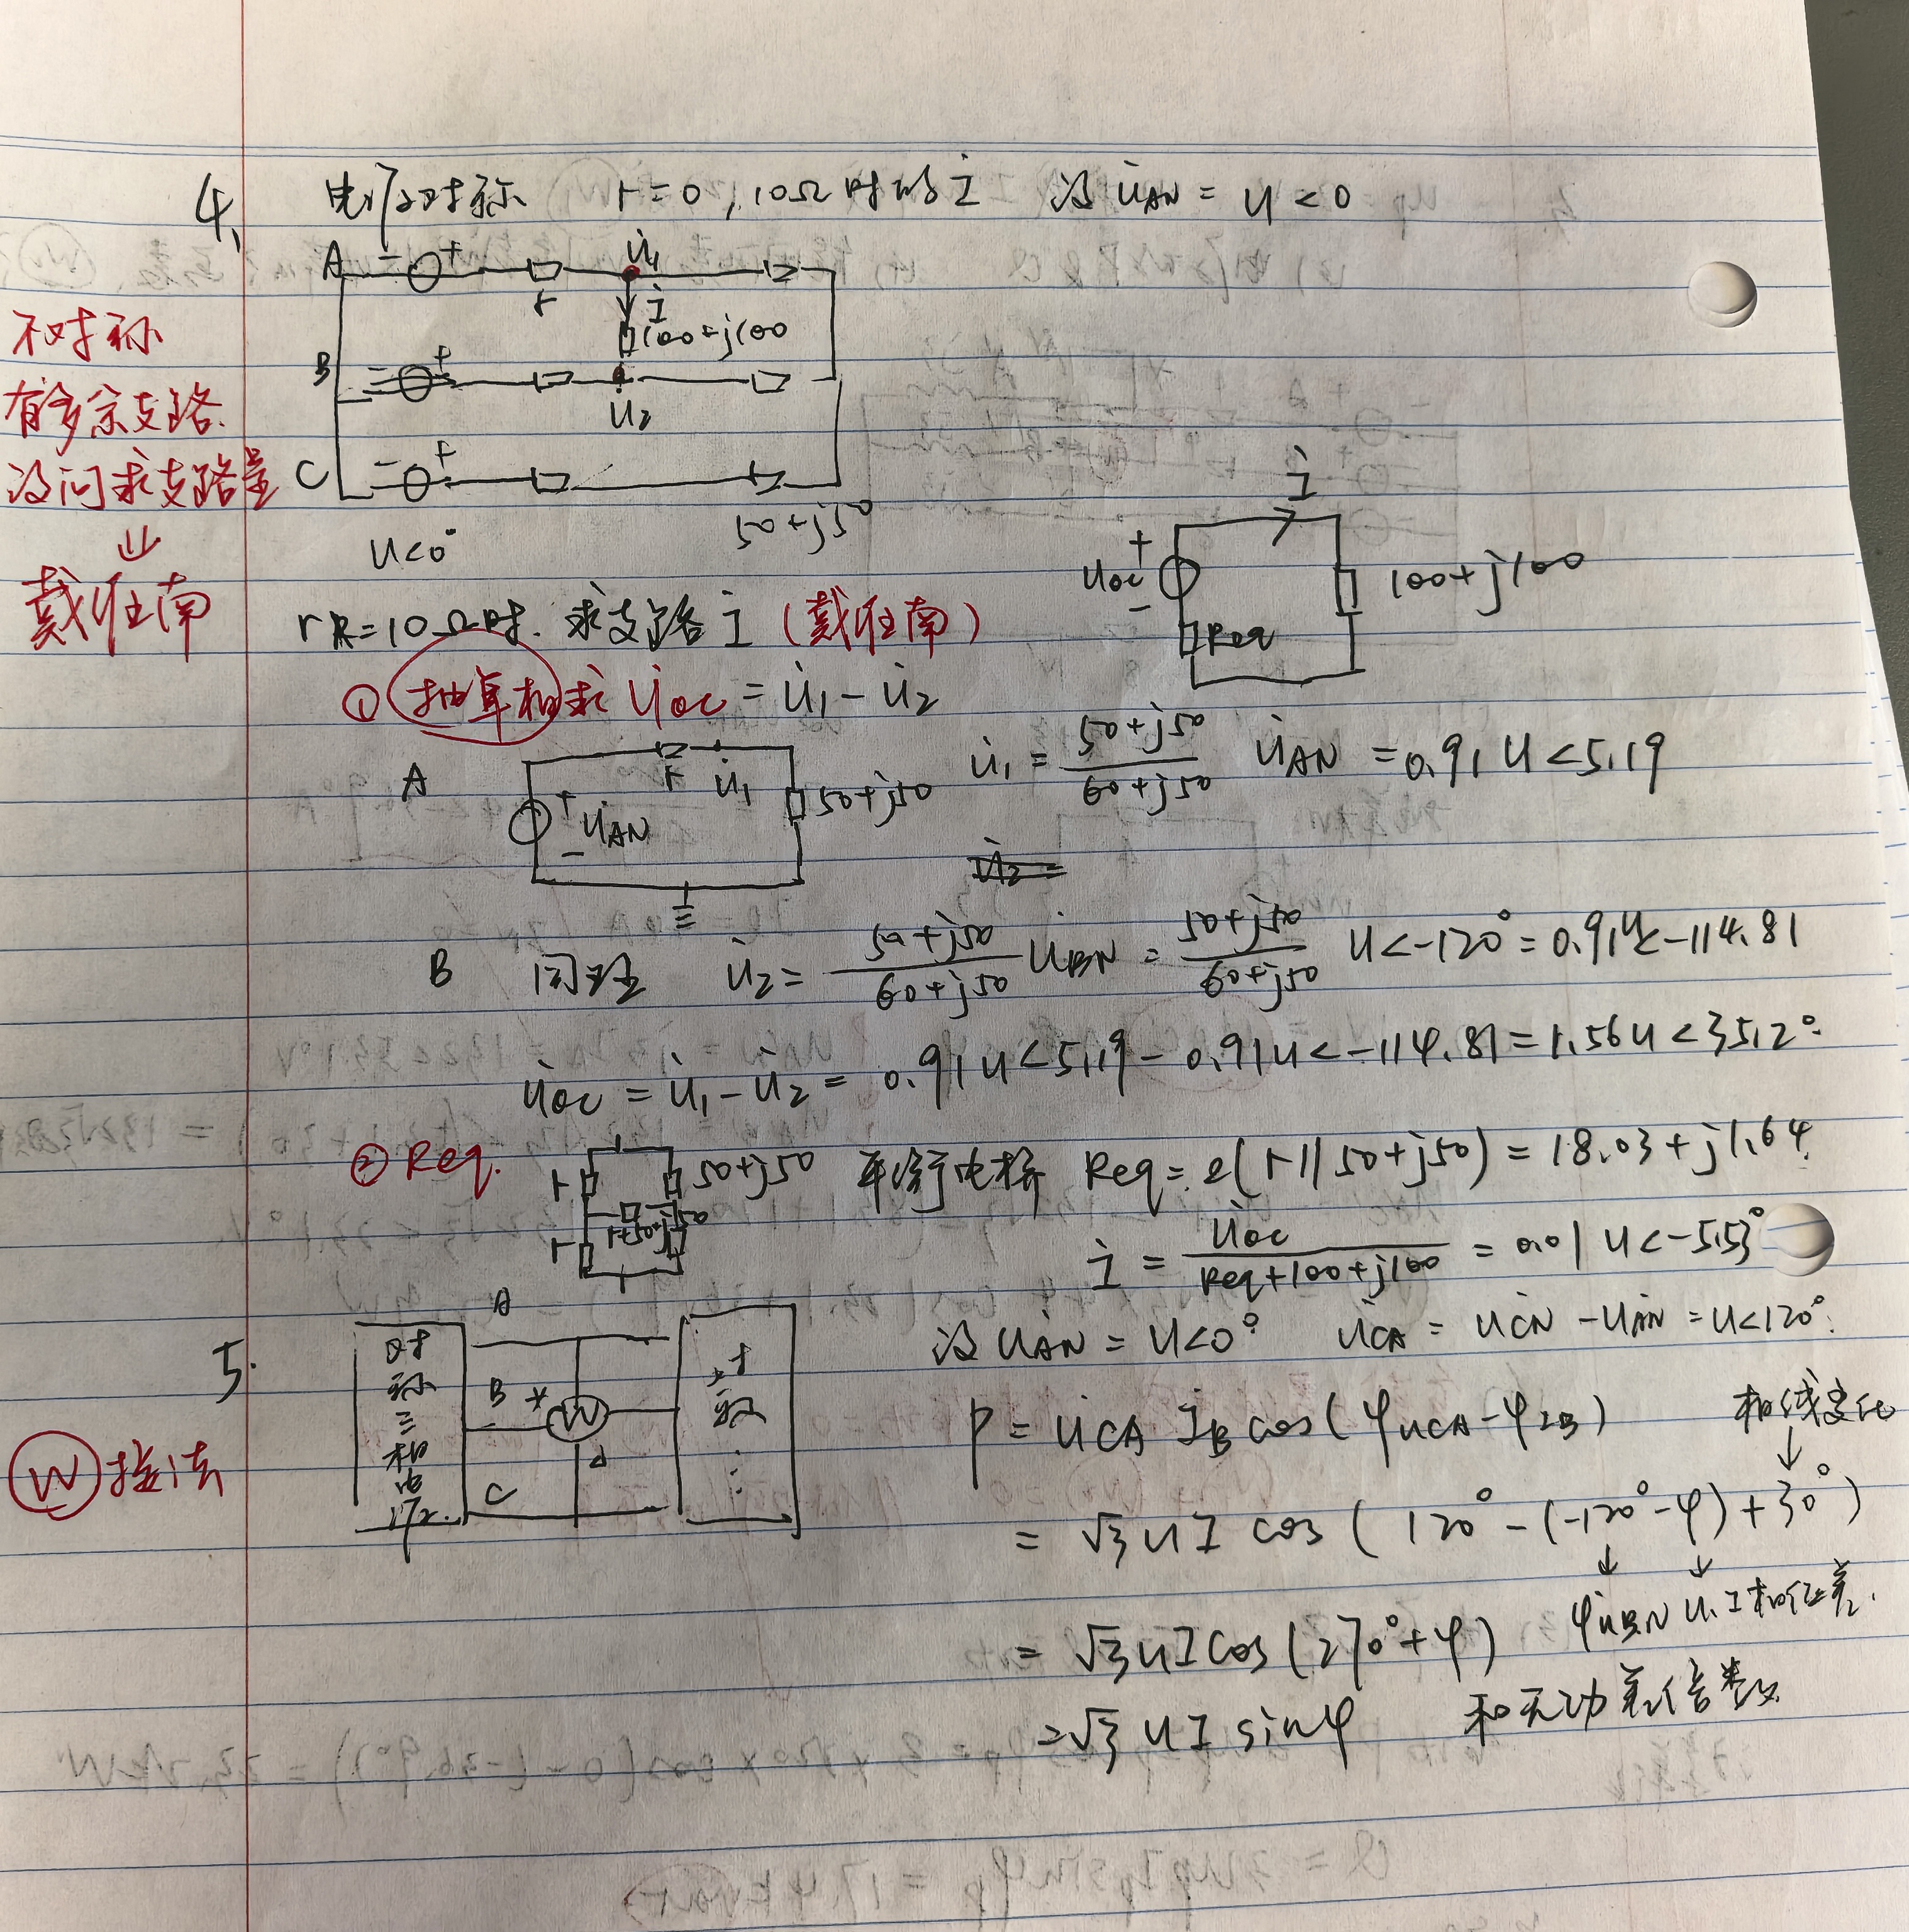 4、 电源对称 r=0，10Ω时的İ 设 U̇AN = U<0
A - + r U̇1
İ
100+j100
B + U2
C - +
50+j50
U<0°
不对称
有多余支路
没问求支路量
⇓
戴维南
r R=10Ω时. 求支路 İ (戴维南)
İ
+ Uoc - Req 100+j100
① 抽单相求 U̇oc = U̇1 - U̇2
A + U̇AN - r U̇1 50+j50 U̇1 = (50+j50)/(60+j50) U̇AN = 0.91U<5.19
U̇2=
B 同理 U̇2 = (50+j50)/(60+j50) U̇BN = (50+j50)/(60+j50) U<-120° = 0.91U<-114.81
U̇oc = U̇1 - U̇2 = 0.91U<5.19 - 0.91U<-114.81 = 1.56U<35.2°
② Req. r 50+j50 r r+50+j50 平衡电桥 Req = 2(r//50+j50) = 18.03+j1.64
İ = U̇oc/(Req+100+j100) = 0.01U<-5.53°
5. 对称三相电源 A B * W C 对称⋮
设 U̇AN = U<0° U̇CA = U̇CN - U̇AN = U<120°.
W 接法
P = U̇CA IB cos(φUCA-φIB) 相线变化
↓
= √3UI cos(120°-(-120°-φ)+30°)
↓ ↓
φU̇BN U、I相位差.
= √3UI cos(270°+φ)
= √3UI sinφ 和无功差倍数